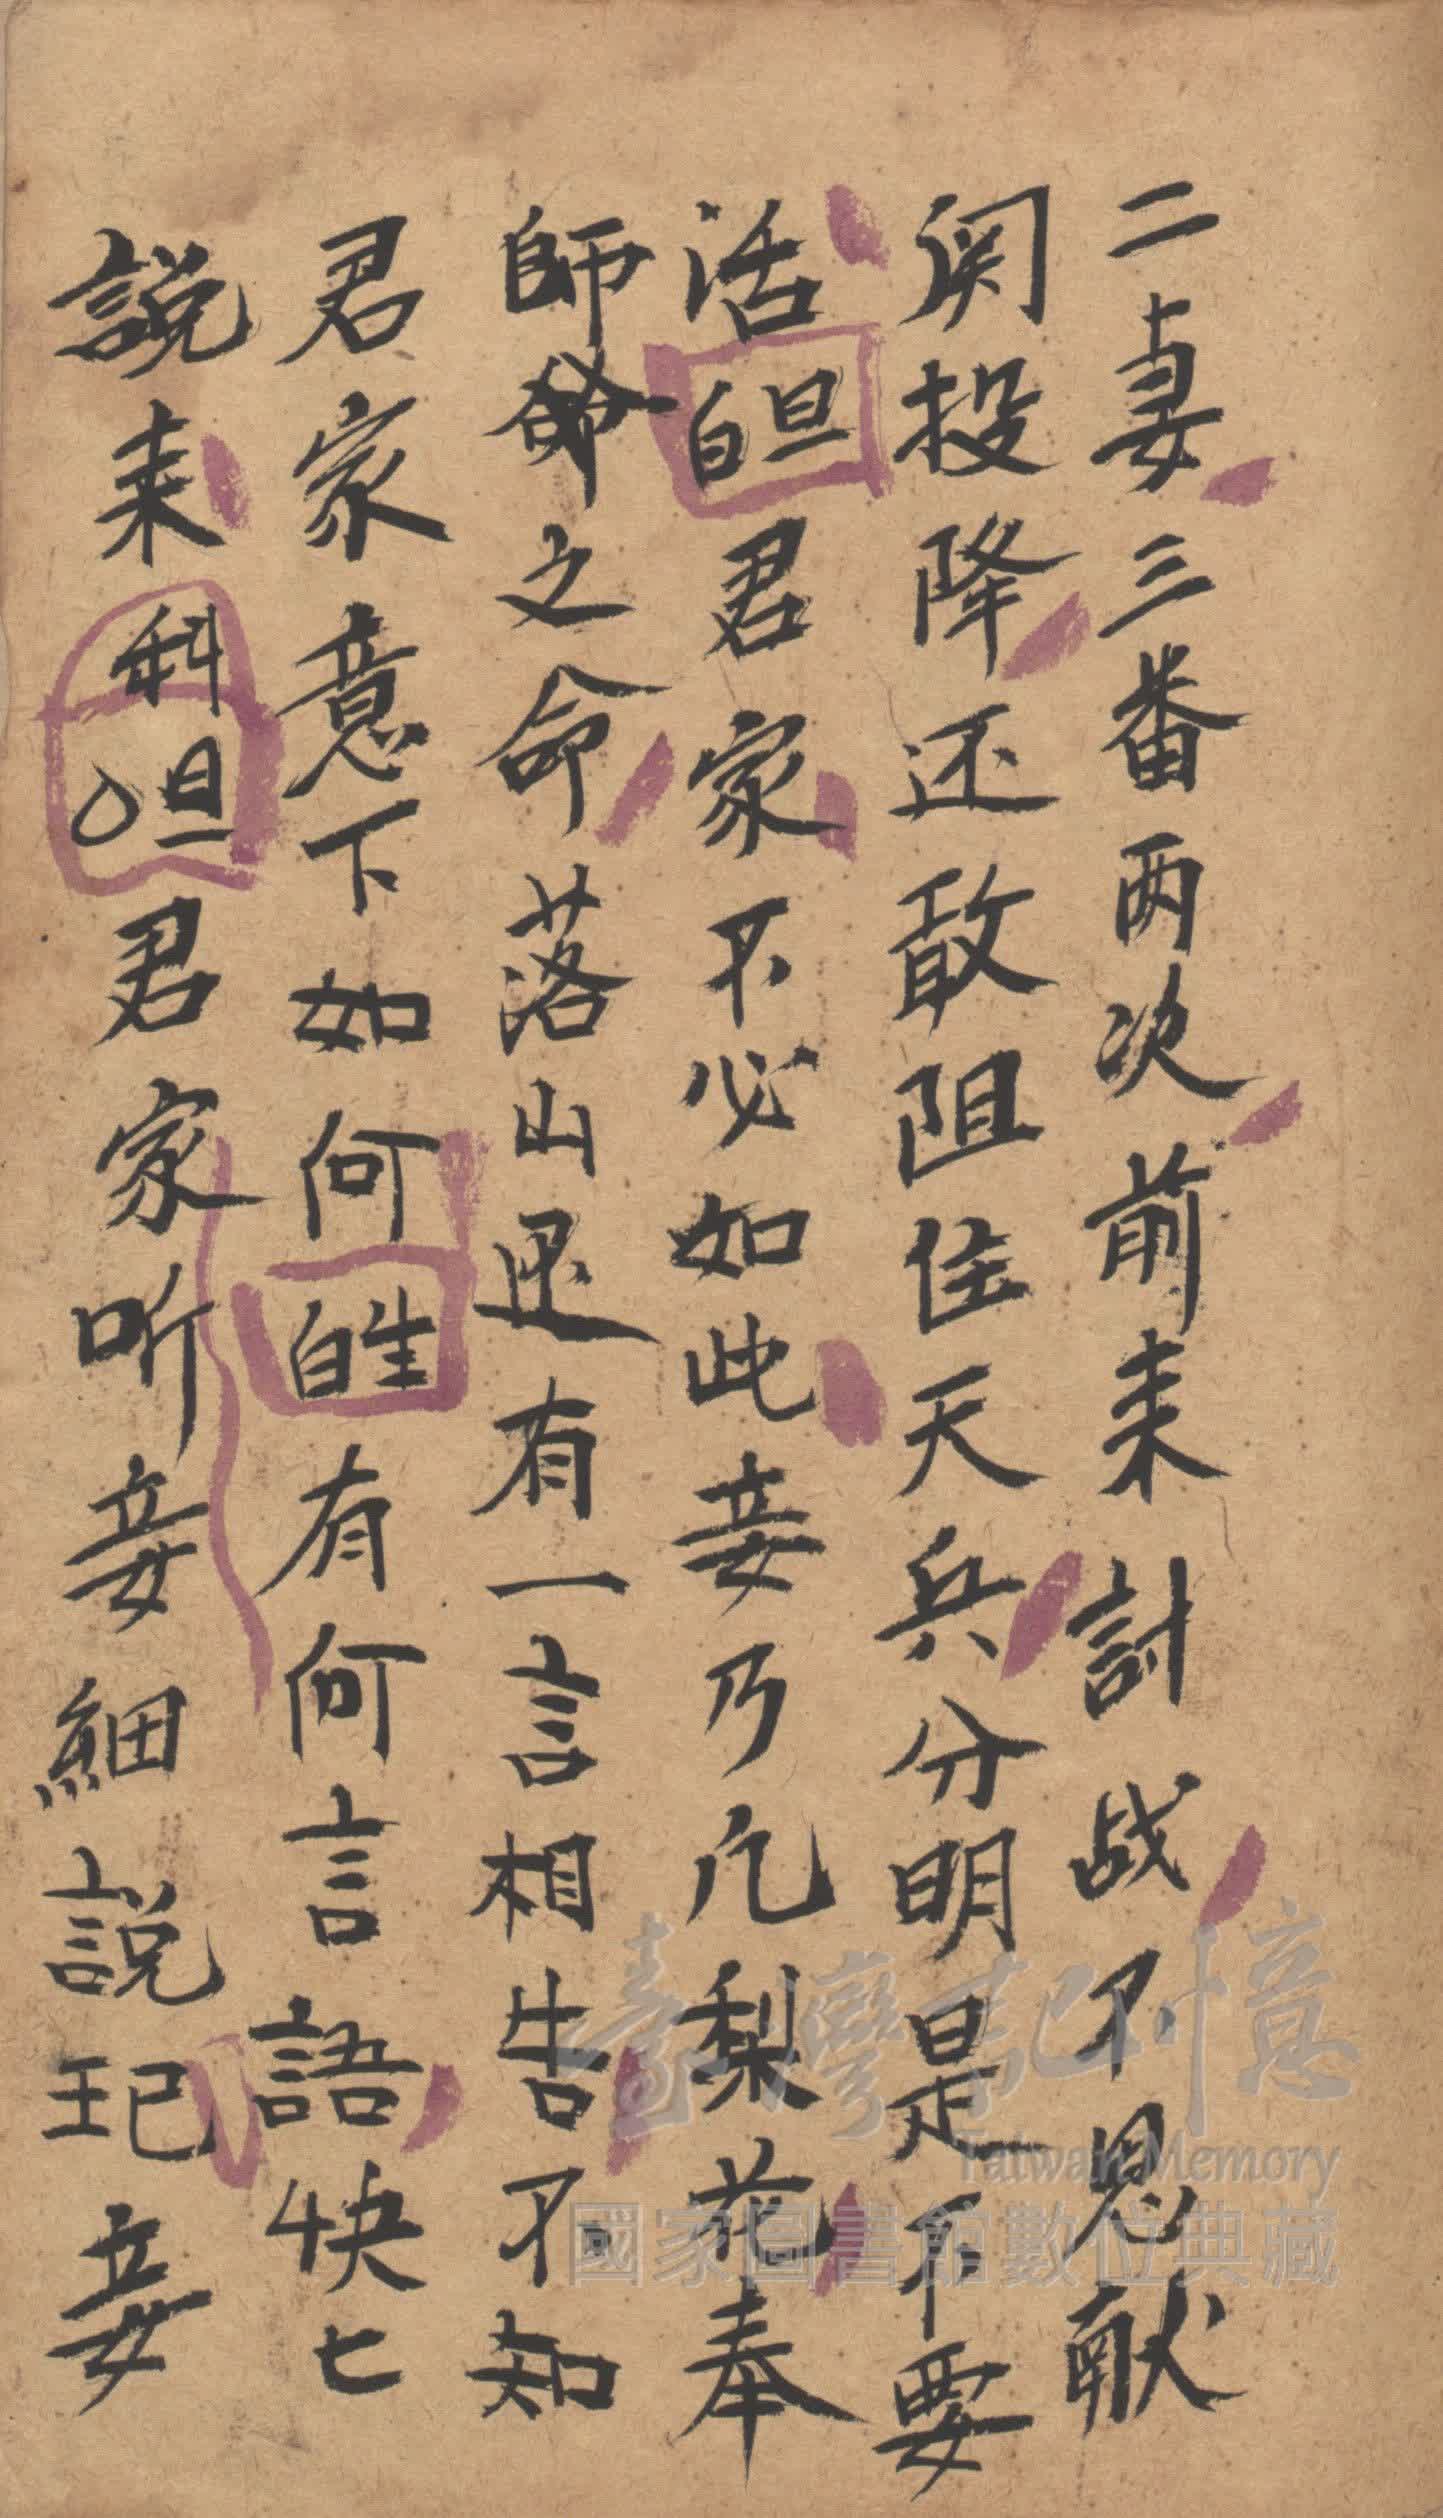 二妻三番两次前来討战不見献
関投降还敢阻住天兵分明是不要
活白旦君家不必如此妾乃凢梨花奉
師命之命落山还有一言相告不知
君家意下如何白生有何言語快匕
説来科〇旦君家听妾細説玘妾
臺灣記憶
Taiwan Memory
國家圖書館數位典藏